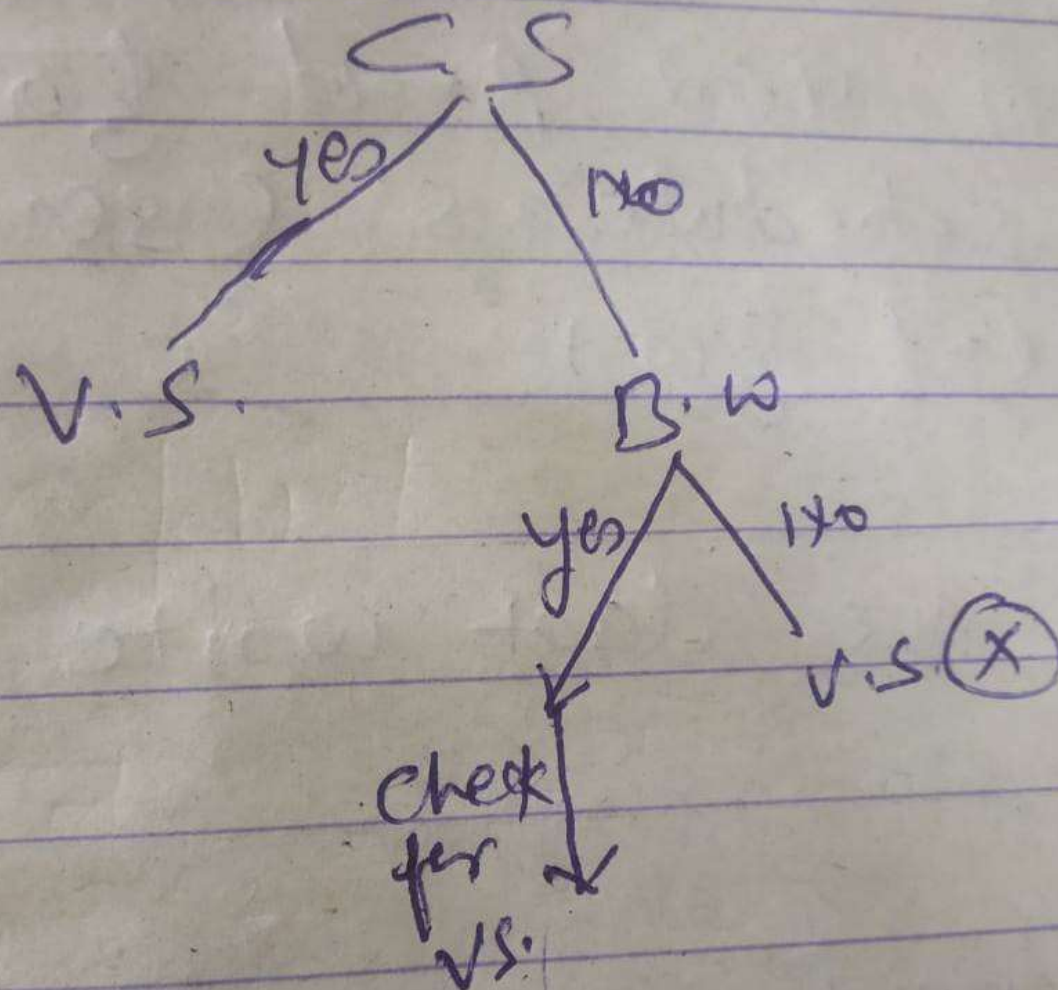 C S
yes no
V.S. B.W
yes no
V.S. X
check
for
VS.